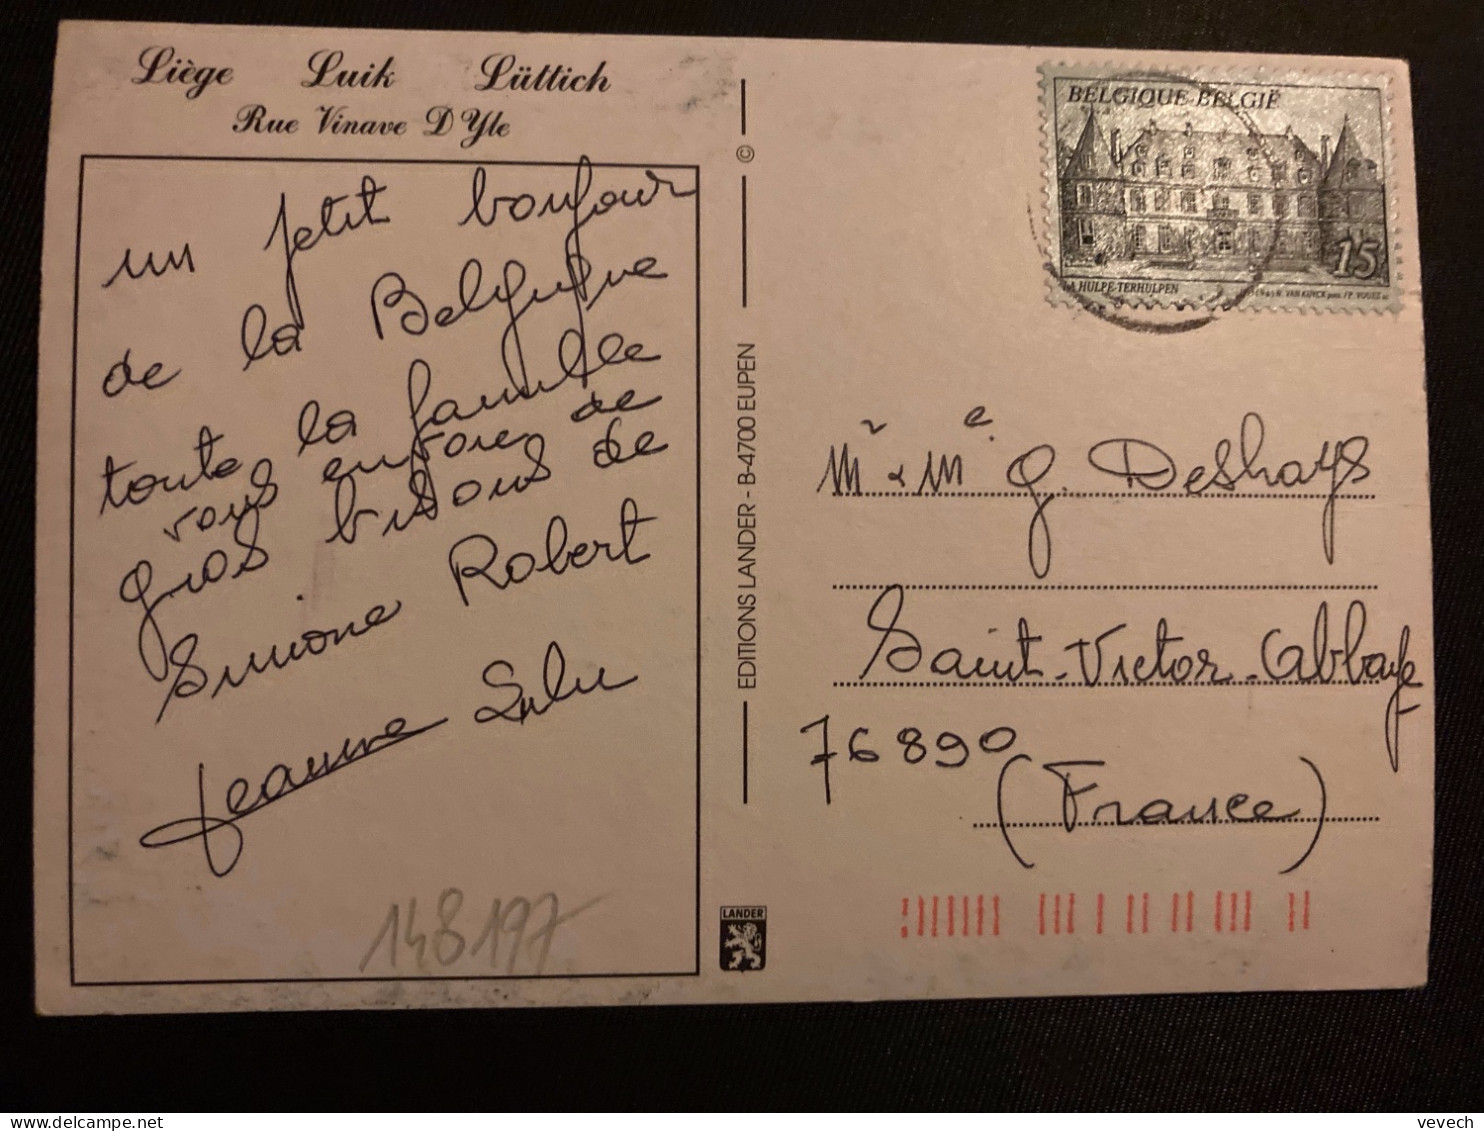 Liège Luik Lüttich
Rue Vinave D'Yle
un petit bonjour
de la Belgique
toute la famille
vous envoie de
gros bisous de
Simone Robert
Jeanne Lulu
148197
©
EDITIONS LANDER - B-4700 EUPEN
LANDER
BELGIQUE-BELGIË
15
LA HULPE-TERHULPEN
Mr & Me G. Deshays
Saint-Victor-l'abbaye
76890
(France)
vevech